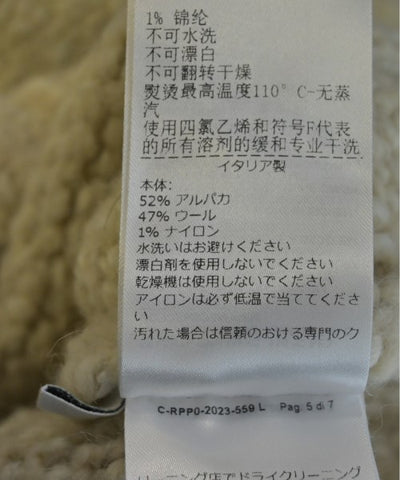 1% 锦纶
不可水洗
不可漂白
不可翻转干燥
熨烫最高温度110° C-无蒸
汽
使用四氯乙烯和符号F代表
的所有溶剂的缓和专业干洗
イタリア製
本体:
52% アルパカ
47% ウール
1% ナイロン
水洗いはお避けください
漂白剤を使用しないでください
乾燥機は使用しないでください
アイロンは必ず低温で当ててくださ
い
汚れた場合は信頼のおける専門のク
C-RPP0-2023-559 L Pag. 5 di 7
リーニング店でドライクリーニング